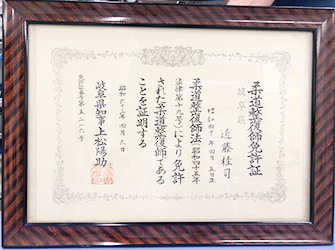 柔道整復師免許証
岐阜県
近藤桂司
昭和四十年四月五日生
柔道整復師法(昭和四十五年
法律第十九号)により免許
された柔道整復師である
ことを証明する
昭和六十年四月六日
岐阜県知事上松陽助